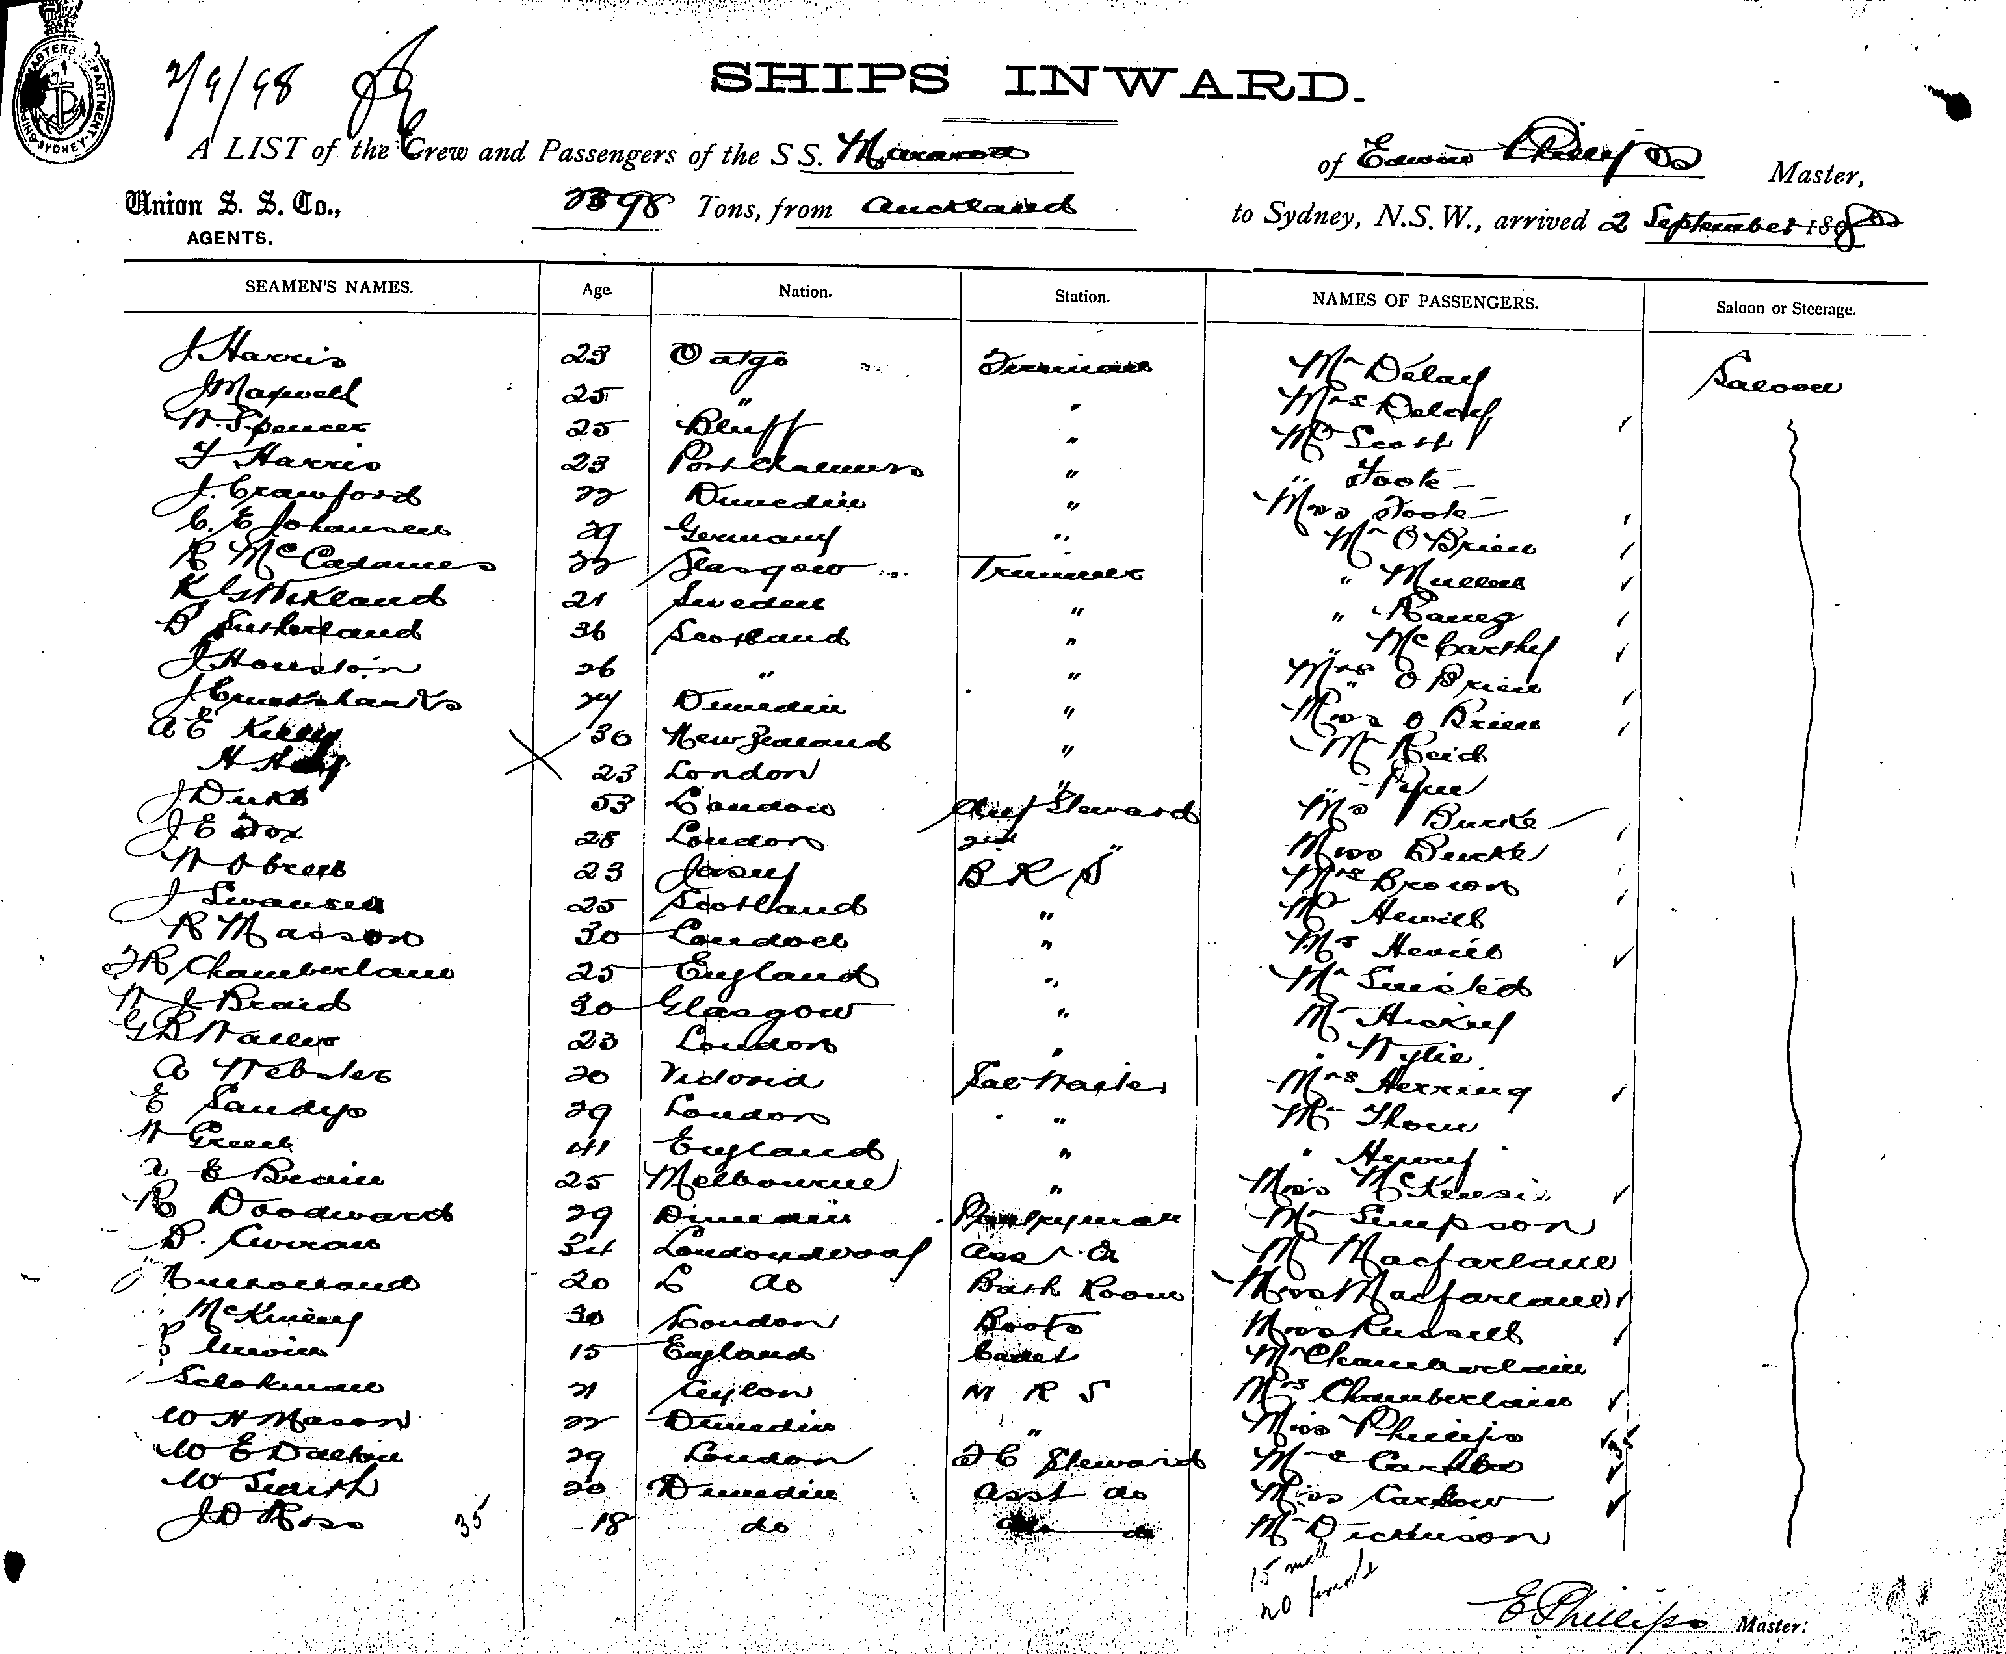 MASTERS DEPARTMENT SYDNEY
2/9/98
SHIPS INWARD.
A LIST of the Crew and Passengers of the S S. Mararoa of Edwin Phillips Master,
Union S. S. Co., 2598 Tons, from Auckland to Sydney, N.S.W., arrived 2 September 1898
AGENTS.
SEAMEN'S NAMES. Age. Nation. Station. NAMES OF PASSENGERS. Saloon or Steerage.
J Harris 23 Otago Fireman Mr Delay Saloon
J Maxwell 25 " " Mrs Delay
W. Spencer 25 Bluff " Mr Scott
F Harris 23 Port Chalmers " " Foote
J. Crawford 22 Dunedin " Miss Foote
C. E Johansen 29 Germany " Mr O'Brien
R McCadames 22 Glasgow Trimmer " Mullen
K G Wikland 21 Sweden "
D Sutherland 36 Scotland " " McCarthy
J Houston 26 " " Mrs O'Brien
J Cruikshanks 27 Dunedin " Miss O Brien
A E Kelly 30 New Zealand " Mr Reid
H 23 London " "
J Duke 53 London Chief Steward Mr Burke
J E Fox 28 London 2nd " Miss Burke
W 23 Jersey B R S Mrs Brown
J Swansen 25 Scotland " Mr Hewitt
R Masson 30 London " Mrs Hewitt
F R Chamberlain 25 England " Mr Smisted
W J Braid 30 Glasgow " Mr Hickey
G B Waller 23 London " " Wylie
A Webster 20 Victoria Sal Waiter Mrs Herring
E Sandys 29 London " Mr Thom
W Green 41 England " " Henry
E Brain 25 Melbourne " Miss McKensie
R Woodward 29 Dunedin Pantryman Mr Simpson
D. Curran 34 Londonderry Asst Do Mr Macfarlane
Mulholland 20 L do Bath Room Miss Macfarlane
McKinley 30 London Boots Miss Russell
15 England Cadet Mr Chamberlain
21 Ceylon M R S Mrs Chamberlain
W H Mason 22 Dunedin " Miss Phillips 35
W E Dalton 29 London F C Steward Mrs Carlow
W Smith 20 Dunedin Asst do Miss Carlow
J D Ross 35 18 do do Mr Dickinson
15 male
20 female
E Phillips Master.